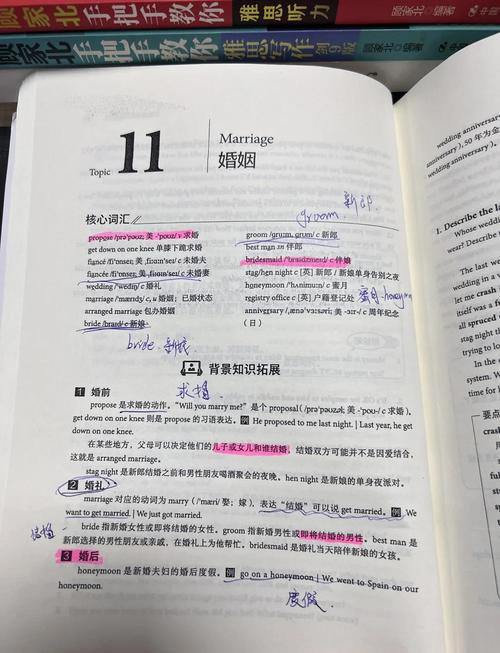 顾家北手把手教你雅思听力
顾家北 编著
顾家北手把手教你雅思写作
顾家北 编著
Topic 11
Marriage
婚姻
新郎
groom
核心词汇
propose /prə'pəʊz; 美 -'poʊz/ v 求婚
get down on one knee 单膝下跪求婚
fiancé /fi'ɒnseɪ; 美 /
fiancée /fi'ɒnseɪ; 美
wedding /'wedɪŋ/ c 婚礼
marriage /'mærɪdʒ/ c, u 婚姻;已婚状态
arranged marriage 包办婚姻
bride /braɪd/ c 新娘
groom /gruːm, grʊm/ c 新郎
best man 伴郎
bridesmaid /'braɪdzmeɪd/ c 伴娘
stag/hen night c [英] 新郎 / 新娘单身告别之夜
honeymoon /'hʌnimuːn/ c 蜜月
registry office c [英] 户籍登记处
anniversary /ˌænə'vɜːsəri; 美 -'vɜːr-/ c 周年纪念
(日)
蜜月 honeymoon
bride 新娘
背景知识拓展
求婚
1 婚前
propose 是求婚的动作。“Will you marry me?” 是个 proposal (/prə'pəʊzl; 美 -'poʊ-/ c 求婚)。
get down on one knee 则是 propose 的习语表达。例 He proposed to me last night. | Last year, he got
down on one knee.
在某些地方,父母可以决定他们的儿子或女儿和谁结婚,结婚双方可能并不是因爱结合,
这就是 arranged marriage.
stag night 是新郎结婚之前和男性朋友喝酒聚会的夜晚。hen night 是新娘的单身夜派对。
2 婚礼
marriage 对应的动词为 marry (/'mæri/ 娶;嫁),表达“结婚”可以说 get married。例 We
want to get married. | We just got married.
bride 指新婚女性或即将结婚的女性。groom 指新婚男性或即将结婚的男性。best man 是
新郎选择的男性朋友或亲戚,在婚礼上为他帮忙。bridesmaid 是婚礼当天陪伴新娘的女孩。
3 婚后
honeymoon 是新婚夫妇的婚后度假。例 go on a honeymoon | We went to Spain on our
honeymoon.
度假
wedding anniversary
anniversary), 50 年为金
wedding anniversary
1. Describe the la
The last we
let me crash
itself was a
all spruced
stag night
trying to lo
The last
system. We
weekend,
要点